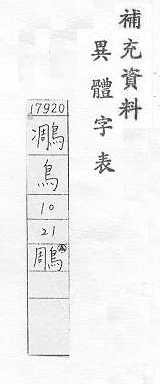 補充資料
異體字表
17920
鳥
10
21
鵰